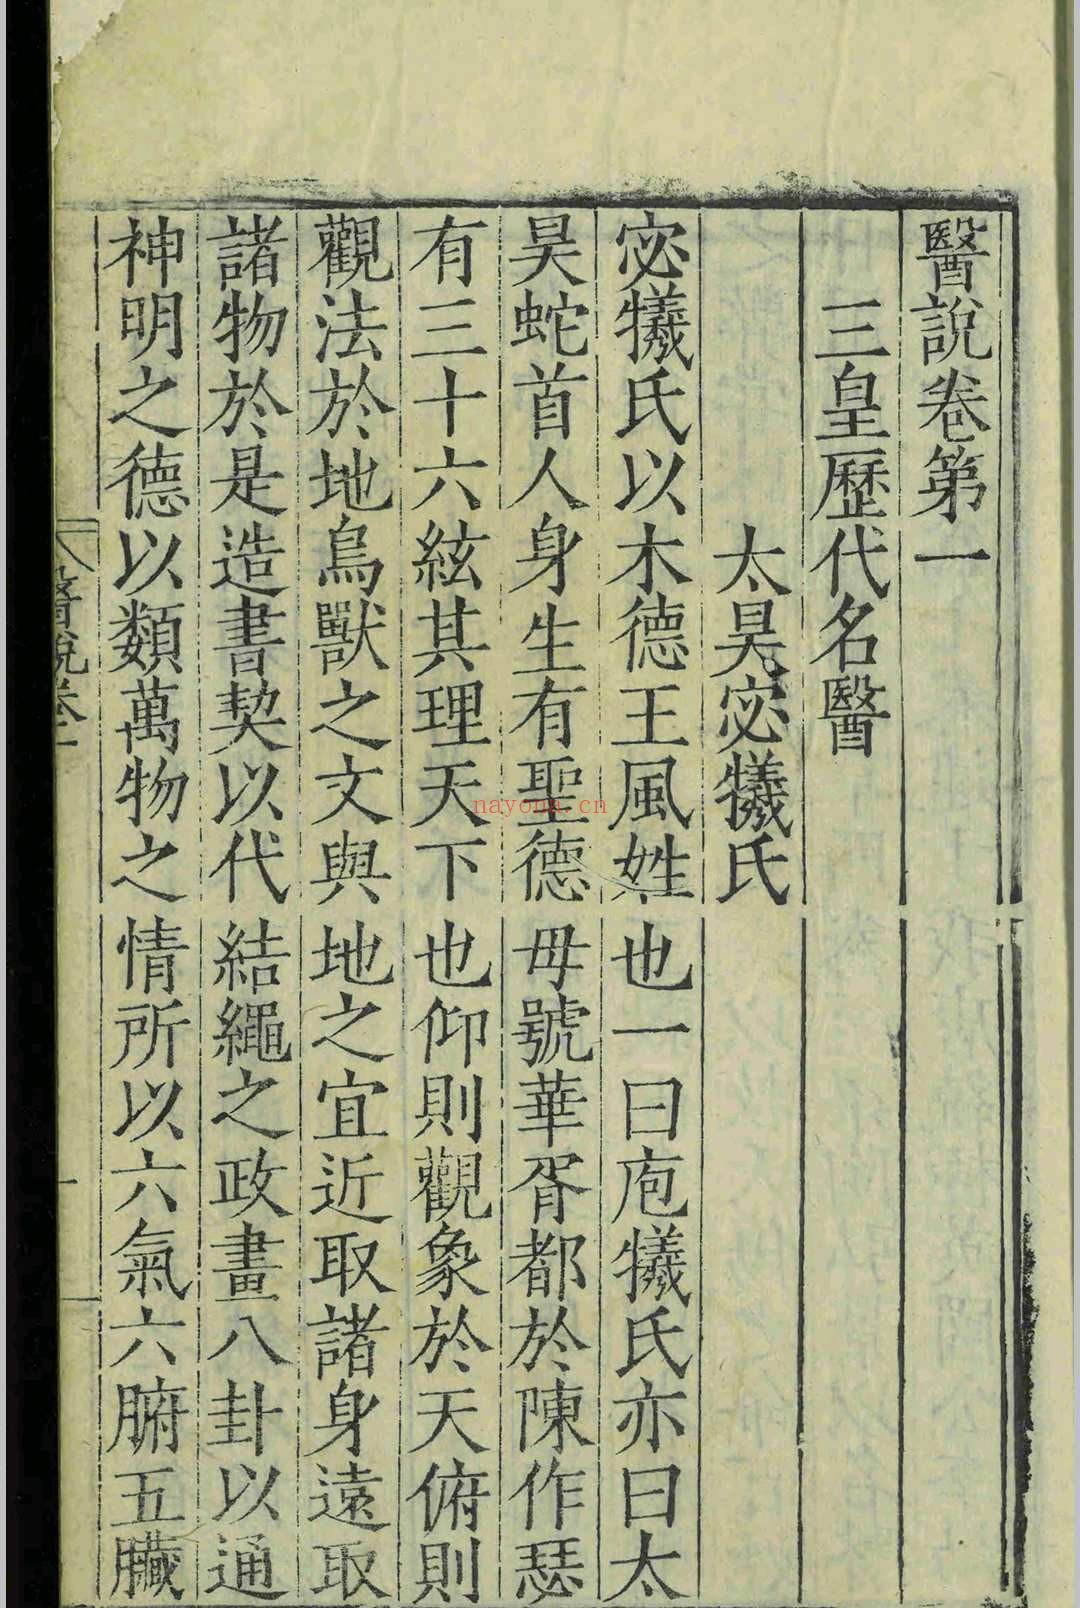 醫說卷第一
三皇歷代名醫
太昊宓犧氏
宓犧氏以木德王風姓也一曰庖犧氏亦曰太
昊蛇首人身生有聖德母號華胥都於陳作瑟
有三十六絃其理天下也仰則觀象於天俯則
觀法於地鳥獸之文與地之宜近取諸身遠取
諸物於是造書契以代結繩之政畫八卦以通
神明之德以類萬物之情所以六氣六腑五臟
醫說卷一
nayona.cn